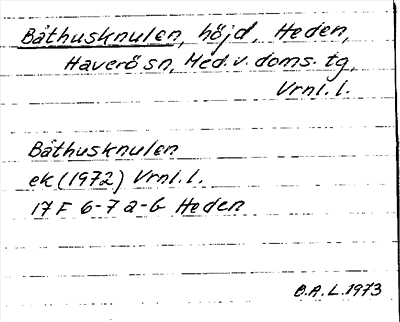 Båthusknulen, höjd, Heden,
Haverö sn, Med. v. doms. tg,
Vrnl. l.
Båthusknulen
ek (1972) Vrnl. l.
17 F 6-7 a-b Heden
B.A.L. 1973